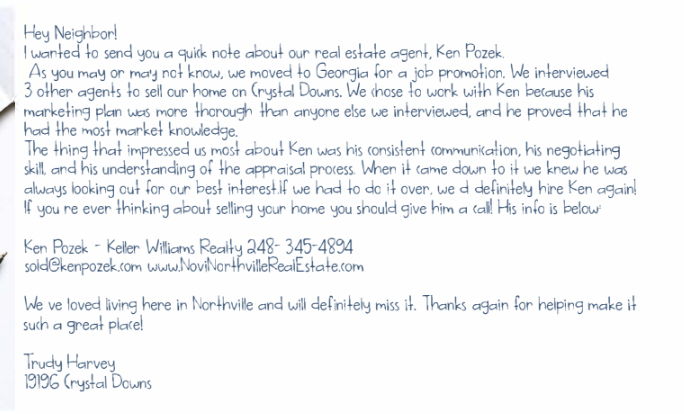 Hey Neighbor!
I wanted to send you a quick note about our real estate agent, Ken Pozek.
As you may or may not know, we moved to Georgia for a job promotion. We interviewed
3 other agents to sell our home on Crystal Downs. We chose to work with Ken because his
marketing plan was more thorough than anyone else we interviewed, and he proved that he
had the most market knowledge.
The thing that impressed us most about Ken was his consistent communication, his negotiating
skill, and his understanding of the appraisal process. When it came down to it we knew he was
always looking out for our best interest.If we had to do it over, we d definitely hire Ken again!
If you re ever thinking about selling your home you should give him a call! His info is below:
Ken Pozek - Keller Williams Realty 248- 345-4894
sold@kenpozek.com www.NoviNorthvilleRealEstate.com
We ve loved living here in Northville and will definitely miss it. Thanks again for helping make it
such a great place!
Trudy Harvey
19196 Crystal Downs